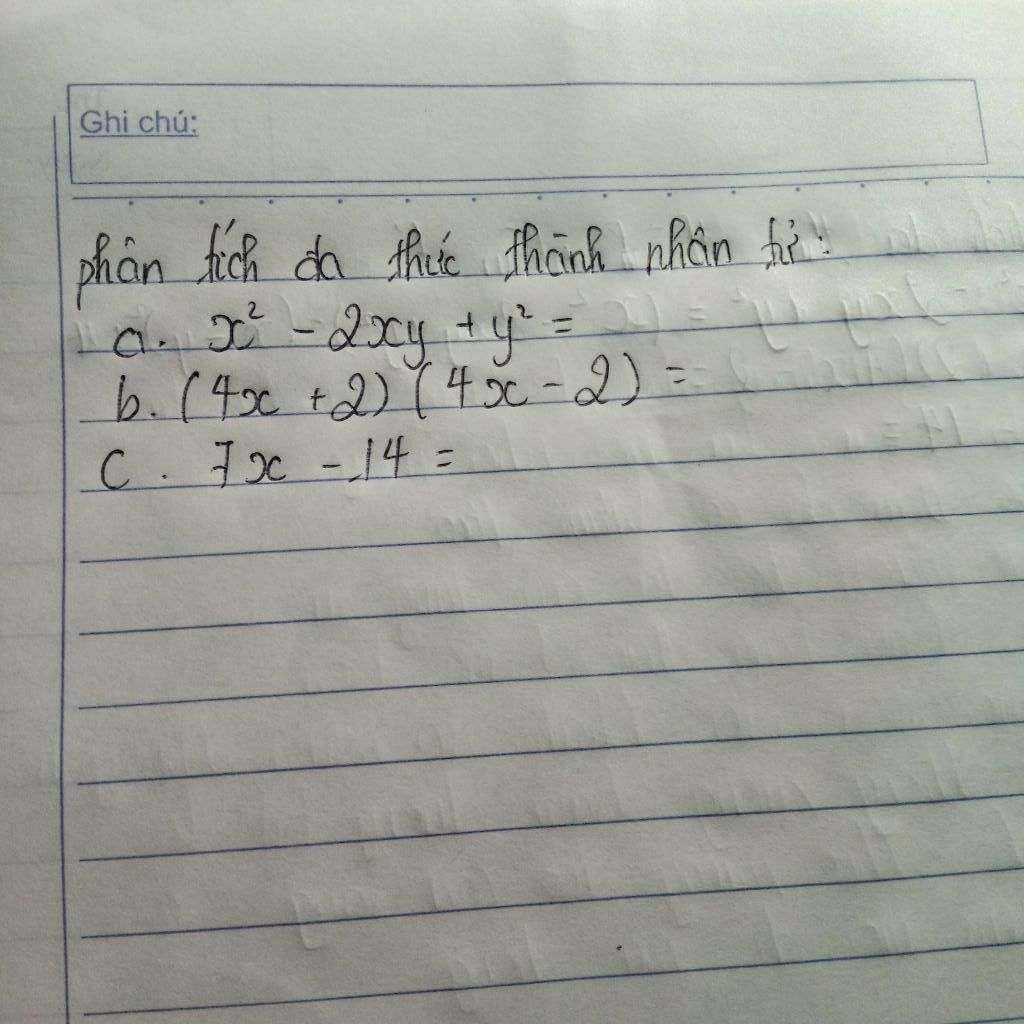 Ghi chú:
phân tích đa thức thành nhân tử:
a. x² - 2xy + y² =
b. (4x + 2) (4x - 2) =
c. 7x - 14 =